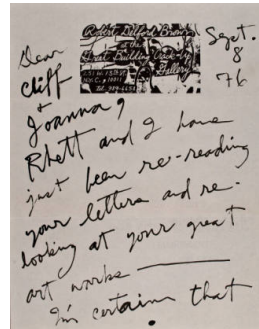 Robert Delford Brown
at the
Great Building Crack-Up
Gallery
251 W. 13th ST.
NYC. 10011
Tel. 989-4451
Sept.
8
76
Dear
Cliff
+
Joanna,
Rhett and I have
just been re-reading
your letters and re-
looking at your great
art works ———
I'm certain that